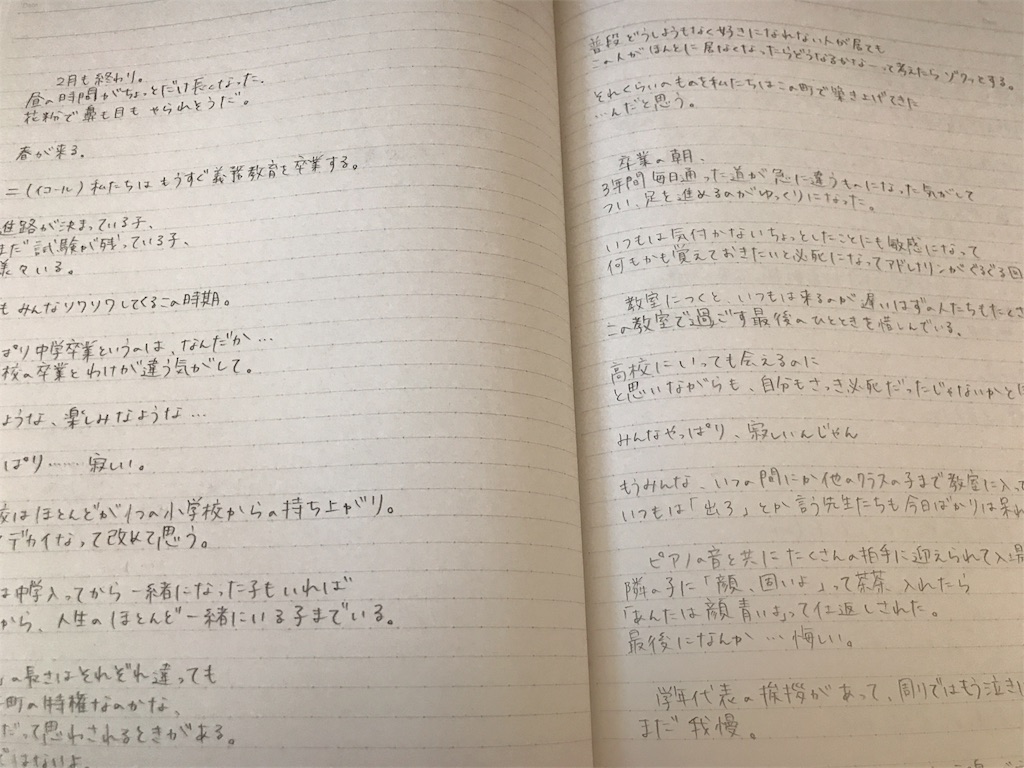 2月も終わり。
昼の時間がちょっとだけ長くなった。
花粉で鼻も目もやられそうだ。
春が来る。
=(イコール)私たちはもうすぐ義務教育を卒業する。
進路が決まっている子、
まだ試験が残っている子、
様々いる。
もみんなソワソワしてくるこの時期。
ぱり中学卒業というのは、なんだか…
校の卒業とわけが違う気がして。
ような、楽しみなような…
ぱり……寂しい。
校はほとんどが1つの小学校からの持ち上がり。
デカイなって改めて思う。
は中学入ってから一緒になった子もいれば
から、人生のほとんど一緒にいる子までいる。
の長さはそれぞれ違っても
町の特権なのかな、
だって思わされるときがある。
ではないよ。
普段どうしようもなく好きになれない人が居ても
この人がほんとに居なくなったらどうなるかなーって考えたらゾクッとする。
それくらいのものを私たちはこの町で築き上げてきた
…んだと思う。
卒業の朝、
3年間毎日通った道が急に違うものになった気がして
つい、足を進めるのがゆっくりになった。
いつもは気付かないちょっとしたことにも敏感になって
何もかも覚えておきたいと必死になってアドレナリンがぐるぐる回
教室につくと、いつもは来るのが遅いはずの人たちも
この教室で過ごす最後のひとときを惜しんでいる。
高校にいっても会えるのに
と思いながらも、自分もさっき必死だったじゃないかと
みんなやっぱり、寂しいんじゃん
もうみんな、いつの間にか他のクラスの子まで教室に入っ
いつもは「出ろ」とか言う先生たちも今日ばかりは呆れ
ピアノの音と共にたくさんの拍手に迎えられて入場
隣の子に「顔、固いよ」って茶茶入れたら
「あんたは顔青いよ」って仕返しされた。
最後になんか…悔しい。
学年代表の挨拶があって、周りではもう泣き
まだ我慢。